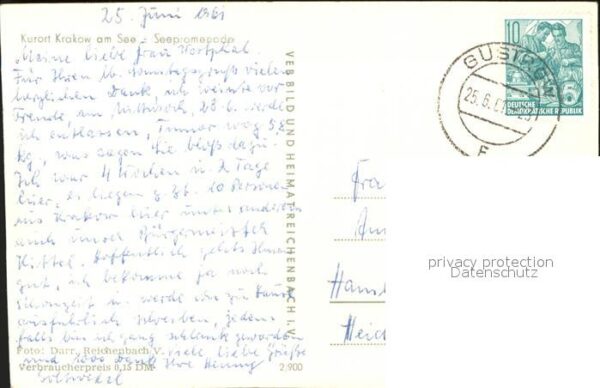 25. Juni 1961
Kurort Krakow am See - Seepromenade
Meine liebe Frau Westphal.
Für Ihren lb. vielen
herzlichen Dank, ich weinte vor
Freude, am Mittwoch, 28.6. werde
ich entlassen, Immer wog 58
kg, was sagen Sie bloß dazu.
Ich war 4 Wochen u. 2 Tage
hier, es liegen z. Zt. 10 Personen
aus Krakow hier unter anderem
auch unser Bürgermeister
Kittel. Hoffentlich gehts Ihnen
gut, ich bekomme ja noch
Schonzeit u. werde dann zu Hause
ausführlich schreiben, jeden-
falls bin ich ganz schlank geworden
Foto: Darr, Reichenbach V.
viele liebe Grüße
und 1000 Dank Ihre Henny
Verbraucherpreis 0,15 DM
2 900
VEB BILD UND HEIMAT REICHENBACH I. V.
10
DEUTSCHE
DEMOKRATISCHE REPUBLIK
GÜSTROW
25.6.61
privacy protection
Datenschutz